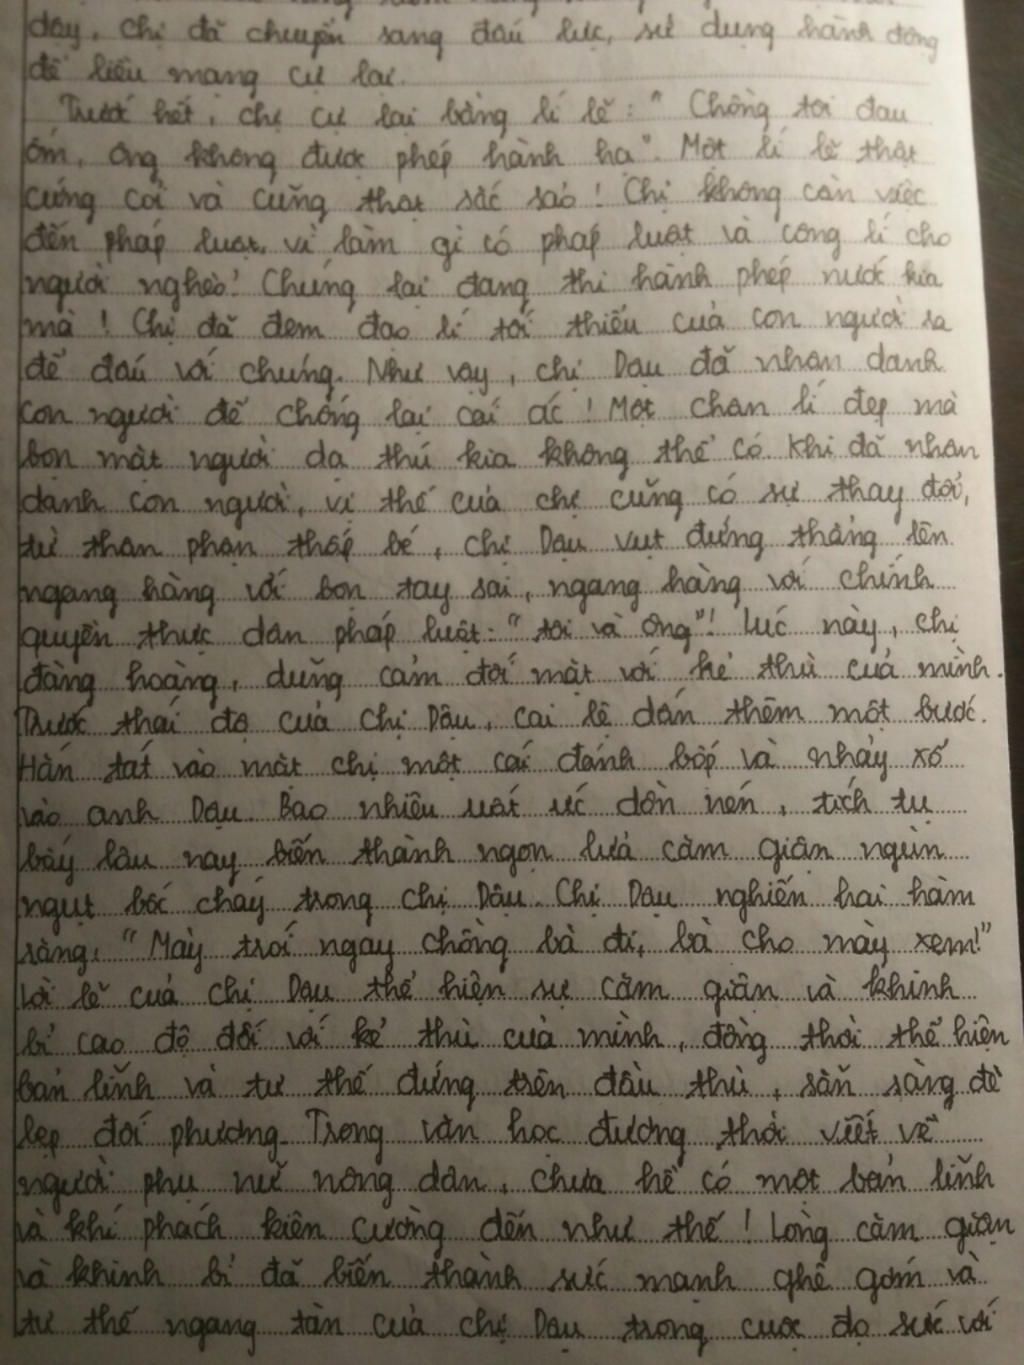 dậy, chị đã chuyển sang đấu lực, sử dụng hành động
để liều mạng cự lại.
Trước hết, chị cự lại bằng lí lẽ: "Chồng tôi đau
ốm, ông không được phép hành hạ". Một lí lẽ thật
cứng cỏi và cũng thật sắc sảo! Chị không cần viện
đến pháp luật, vì làm gì có pháp luật và công lí cho
người nghèo! Chúng lại đang thi hành phép nước kia
mà! Chị đã đem đạo lí tối thiểu của con người ra
để đấu với chúng. Như vậy, chị Dậu đã nhân danh
con người để chống lại cái ác! Một chân lí đẹp mà
bọn mặt người dạ thú kia không thể có. Khi đã nhân
danh con người, vị thế của chị cũng có sự thay đổi,
từ thân phận thấp bé, chị Dậu vụt đứng thẳng lên
ngang hàng với bọn tay sai, ngang hàng với chính
quyền thực dân pháp luật: "tôi và ông"! Lúc này, chị
đàng hoàng, dũng cảm đối mặt với kẻ thù của mình.
Trước thái độ của chị Dậu, cai lệ dấn thêm một bước.
Hắn tát vào mặt chị một cái đánh bốp và nhảy xổ
vào anh Dậu. Bao nhiêu uất ức dồn nén, tích tụ
bấy lâu nay biến thành ngọn lửa căm giận ngùn
ngụt bốc cháy trong chị Dậu. Chị Dậu nghiến hai hàm
răng: "Mày trói ngay chồng bà đi, bà cho mày xem!"
Lời lẽ của chị Dậu thể hiện sự căm giận và khinh
bỉ cao độ đối với kẻ thù của mình, đồng thời thể hiện
bản lĩnh và tư thế đứng trên đầu thù, sẵn sàng đè
bẹp đối phương. Trong văn học đương thời viết về
người phụ nữ nông dân, chưa hề có một bản lĩnh
và khí phách kiên cường đến như thế! Lòng căm giận
và khinh bỉ đã biến thành sức mạnh ghê gớm và
tư thế ngang tàn của chị Dậu trong cuộc đọ sức với